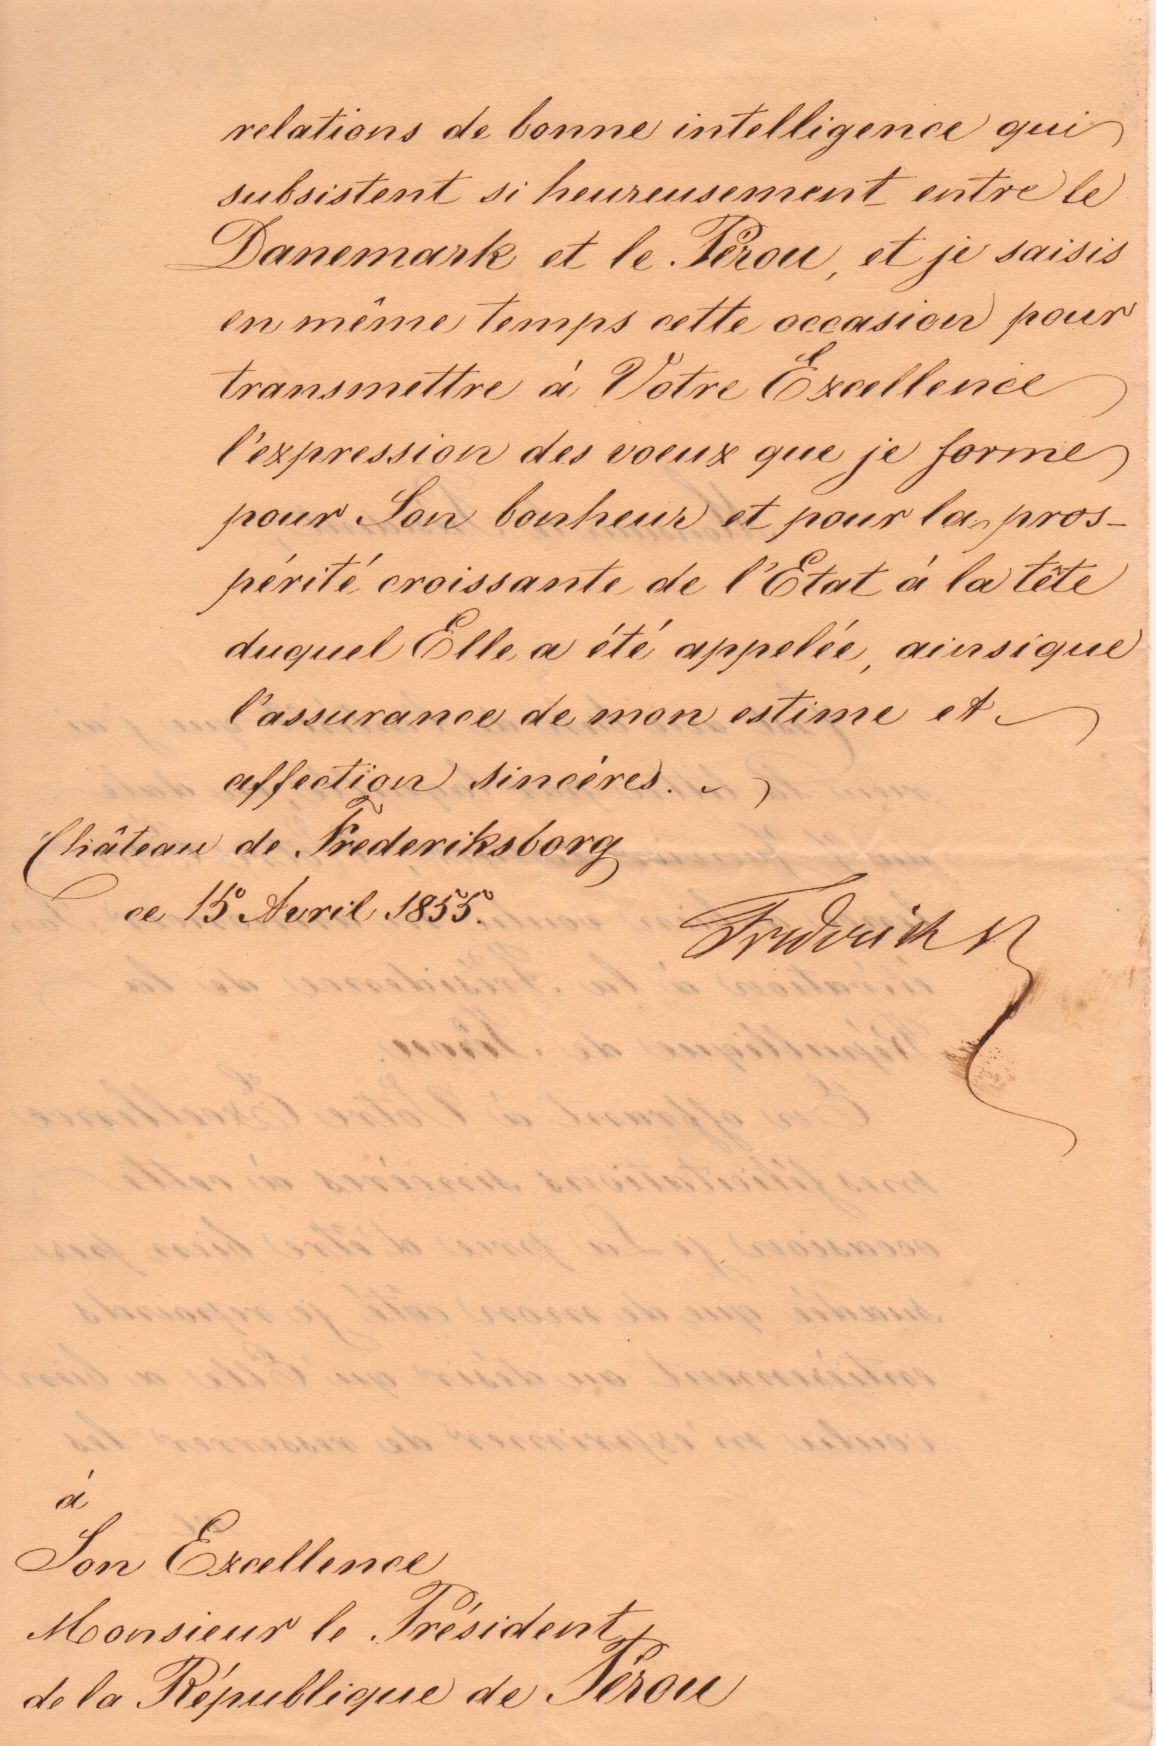 relations de bonne intelligence qui
subsistent si heureusement entre le
Danemark et le Pérou, et je saisis
en même temps cette occasion pour
transmettre à Votre Excellence
l'expression des voeux que je forme
pour Son bonheur et pour la pros-
périté croissante de l'Etat à la tête
duquel Elle a été appelée, ainsi que
l'assurance de mon estime et
affection sincères.
Château de Frederiksborg
ce 15 Avril 1855.
Frederik R
à
Son Excellence
Monsieur le Président
de la République de Pérou